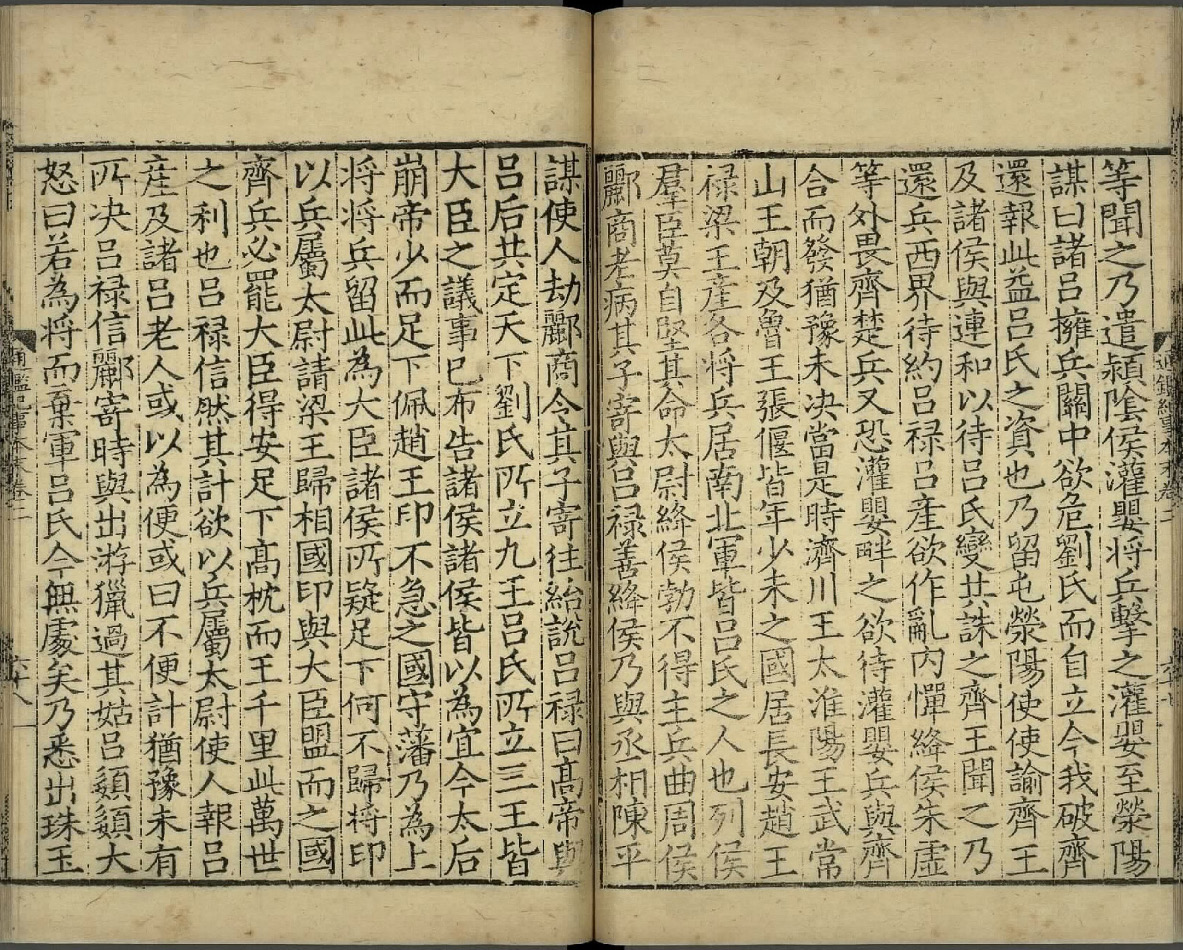 等聞之乃遣潁陰侯灌嬰将兵擊之灌嬰至滎陽
謀曰諸呂擁兵關中欲危劉氏而自立今我破齊
還報此益呂氏之資也乃留屯滎陽使使諭齊王
及諸侯與連和以待呂氏變共誅之齊王聞之乃
還兵西界待約呂禄呂産欲作亂内憚絳侯朱虚
等外畏齊楚兵又恐灌嬰畔之欲待灌嬰兵與齊
合而發猶豫未决當是時濟川王太淮陽王武常
山王朝及魯王張偃皆年少未之國居長安趙王
禄梁王産各将兵居南北軍皆呂氏之人也列侯
羣臣莫自堅其命太尉絳侯勃不得主兵曲周侯
酈商老病其子寄與呂禄善絳侯乃與丞相陳平
謀使人劫酈商令其子寄往紿說呂禄曰髙帝與
呂后共定天下劉氏所立九王呂氏所立三王皆
大臣之議事已布告諸侯諸侯皆以為宜今太后
崩帝少而足下佩趙王印不急之國守藩乃為上
将将兵留此為大臣諸侯所疑足下何不歸将印
以兵屬太尉請梁王歸相國印與大臣盟而之國
齊兵必罷大臣得安足下髙枕而王千里此萬世
之利也呂禄信然其計欲以兵屬太尉使人報呂
産及諸呂老人或以為便或曰不便計猶豫未有
所决呂禄信酈寄時與出游獵過其姑呂嬃嬃大
怒曰若為将而棄軍呂氏今無處矣乃悉出珠玉
通鑑紀事本末卷二
六十七
通鑑紀事本末卷二
六十八